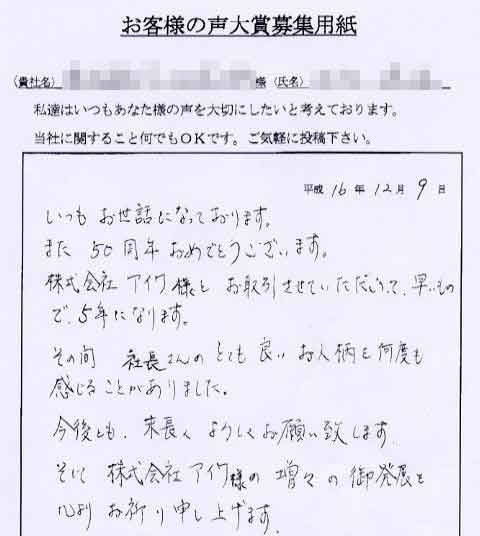 お客様の声大賞募集用紙
(貴社名) 様 (氏名)
私達はいつもあなた様の声を大切にしたいと考えております。
当社に関すること何でもＯＫです。ご気軽に投稿下さい。
平成 16 年 12 月 9 日
いつも お世話になっております。
また 50周年 おめでとうございます。
株式会社 アイワ様と お取引させていただいて、早いもの
で、5年になります。
その間 社長さんの とても 良い お人柄を何度も
感じることがありました。
今後とも、末長く よろしくお願い致します。
そして 株式会社 アイワ様の 増々の 御発展を
心より お祈り申し上げます。